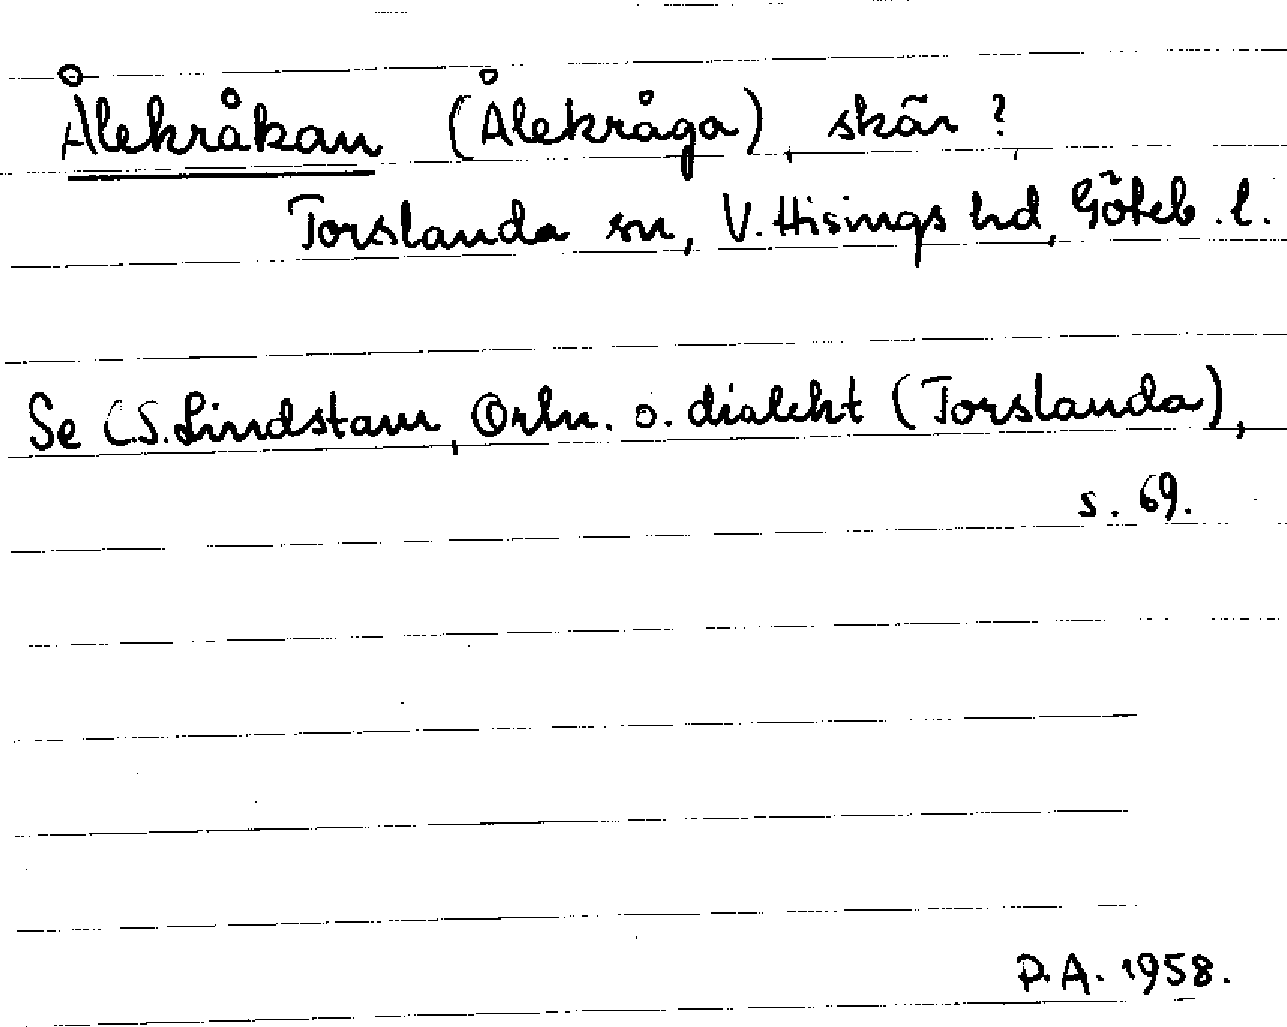 Ålekråkan (Ålekråga), skär?,
Torslanda sn, V. Hisings hd, Göteb. l.
Se C.S. Lindstam, Ortn. o. dialekt (Torslanda),
s. 69.
P.A. 1958.